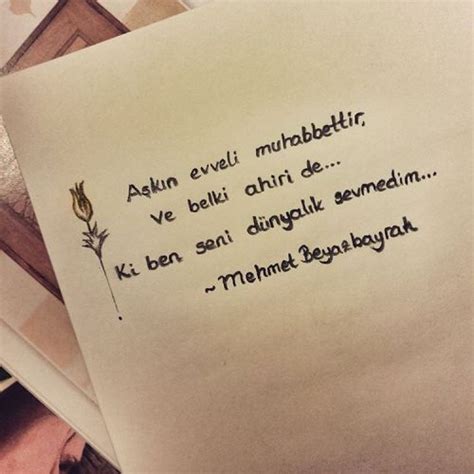 Aşkın evveli muhabbettir,
ve belki ahiri de...
Ki ben seni dünyalık sevmedim...
~Mehmet Beyazbayrak